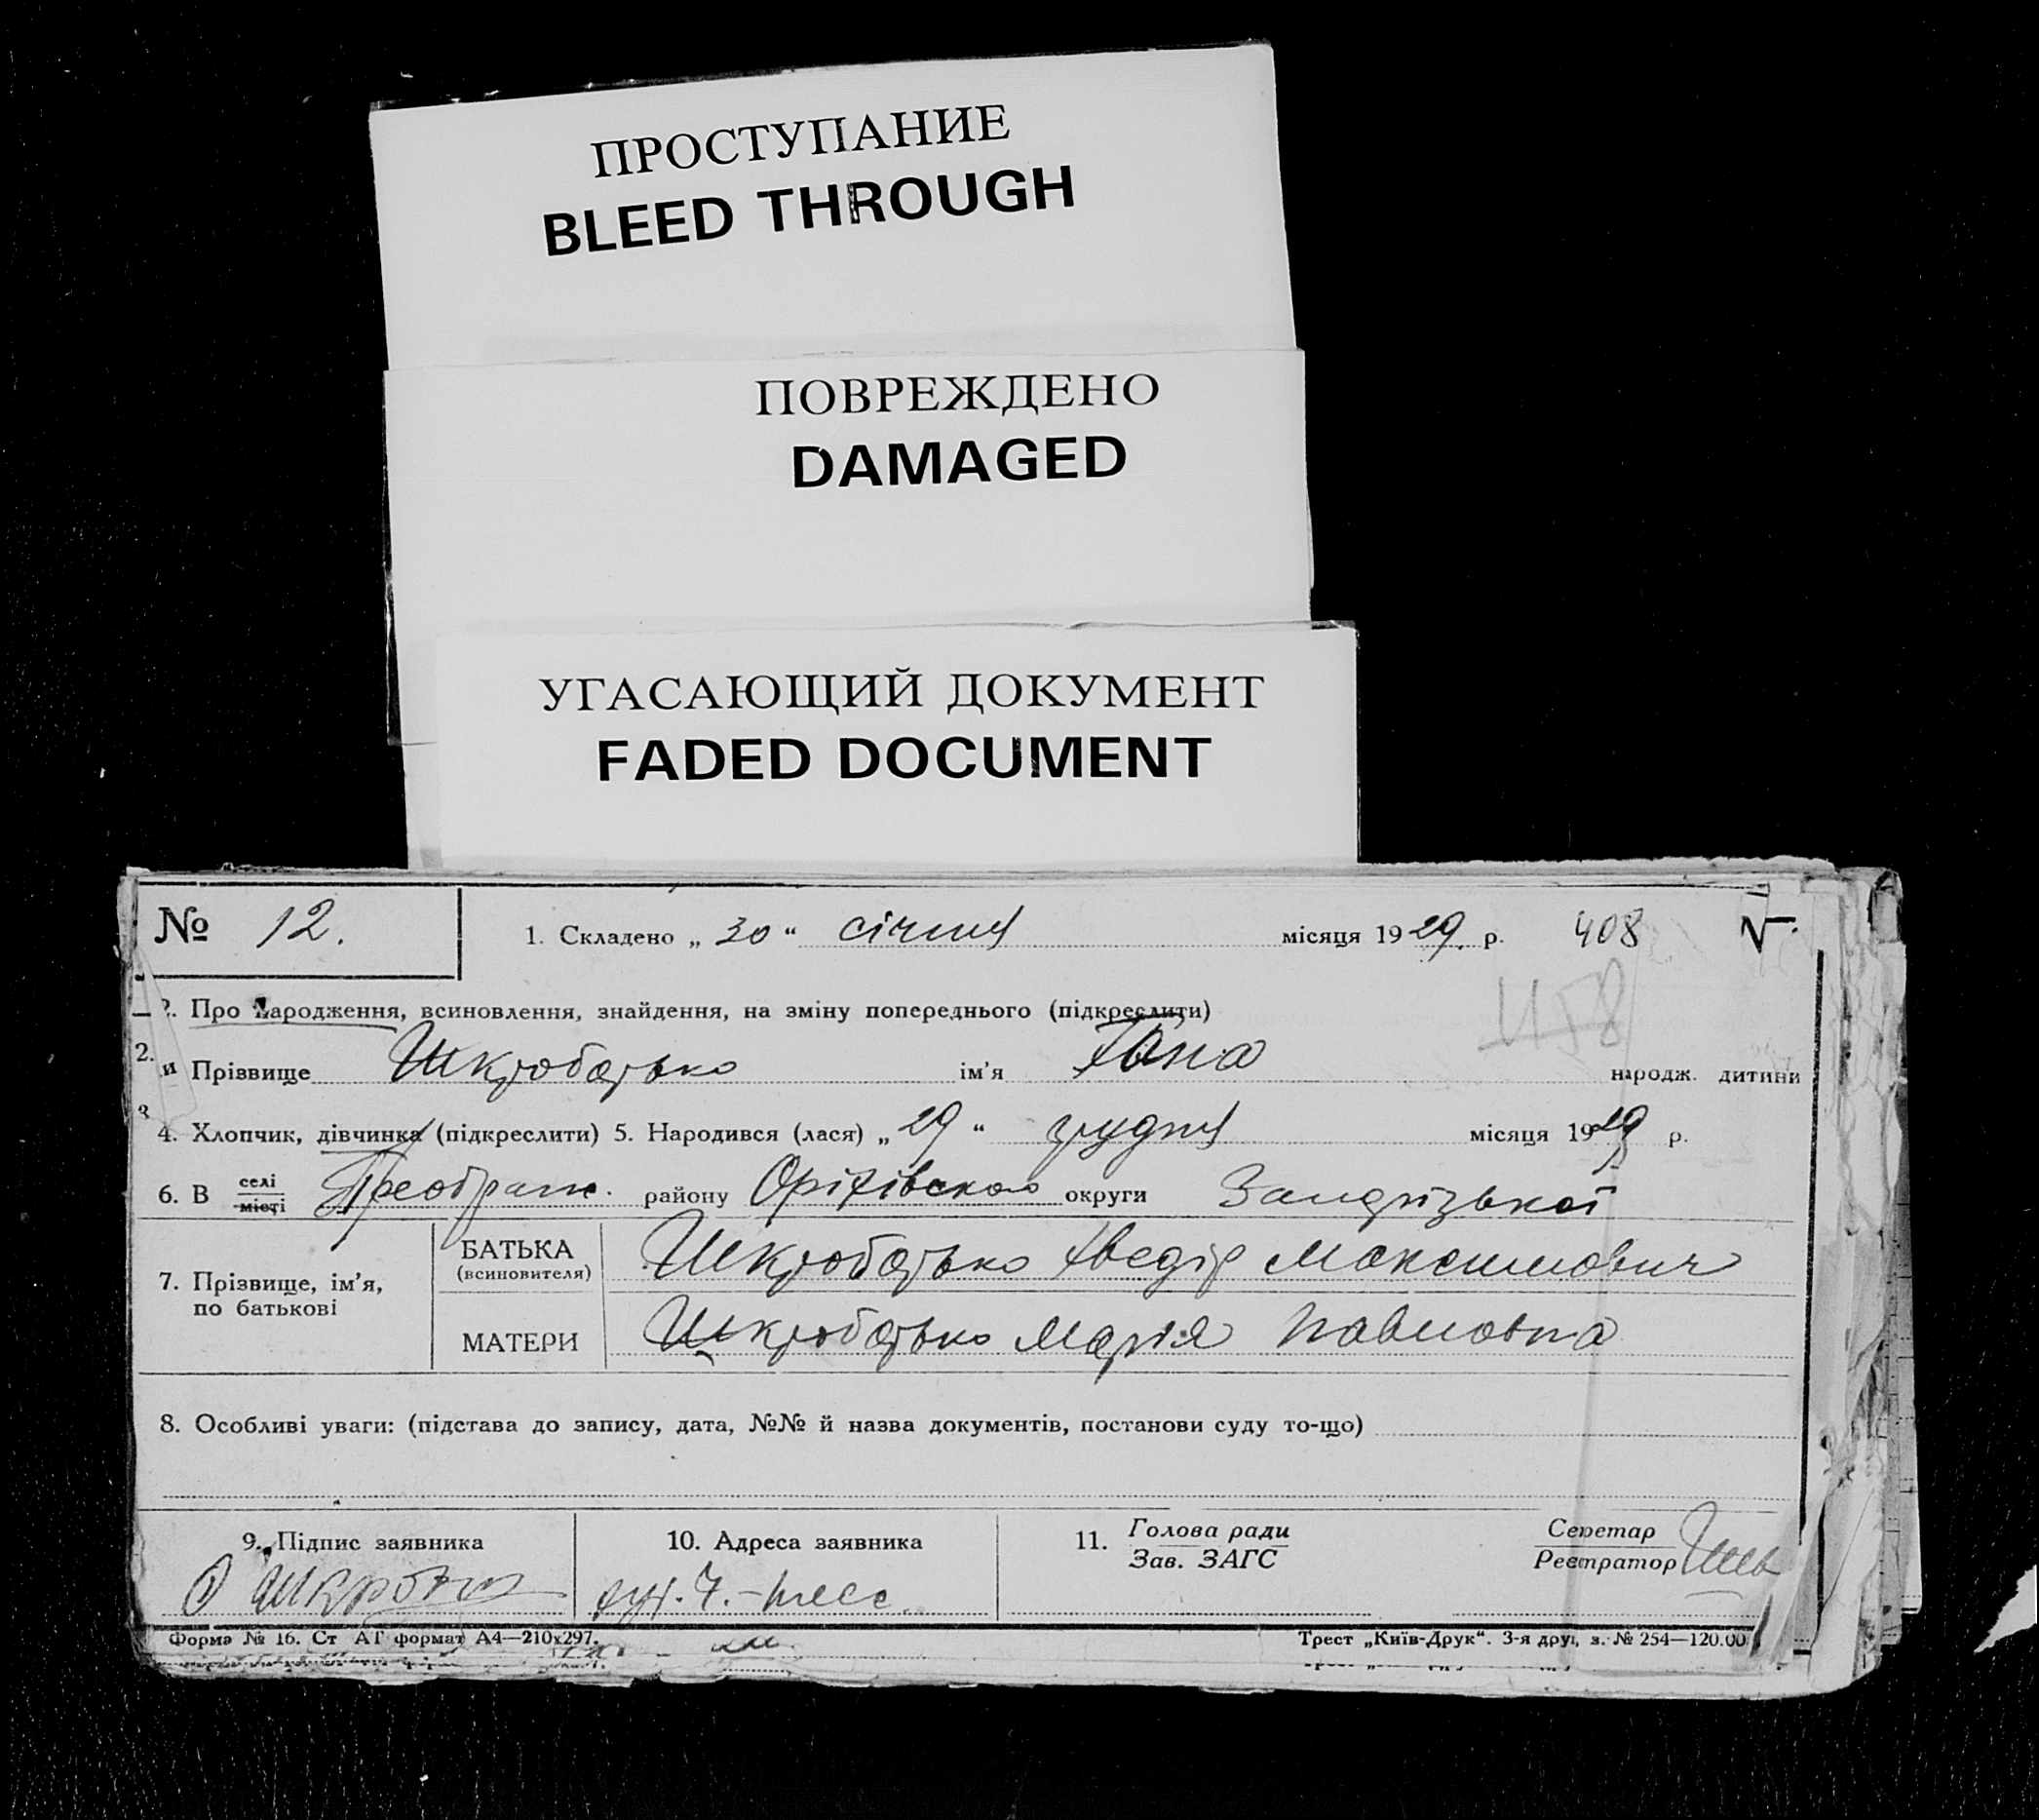 ПРОСТУПАНИЕ
BLEED THROUGH
ПОВРЕЖДЕНО
DAMAGED
УГАСАЮЩИЙ ДОКУМЕНТ
FADED DOCUMENT
№ 12. 1. Складено „ 30 “ січня місяця 1929. р. 408
2. Про народження, всиновлення, знайдення, на зміну попереднього (підкреслити)
1158
2. и Прізвище ім'я народж. дитини
3 4. Хлопчик, дівчинка (підкреслити) 5. Народився (лася) „ 29 “ грудня місяця 19 р.
6. В селі місті Преображ. району Оріхівського округи Запорізької
7. Прізвище, ім'я, по батькові
БАТЬКА (всиновителя) Максимович
МАТЕРИ Марія Павловна
8. Особливі уваги: (підстава до запису, дата, №№ й назва документів, постанови суду то-що)
9. Підпис заявника 10. Адреса заявника 11. Голова ради Зав. ЗАГС Секретар Реєстратор
Форма № 16. Ст АГ формат А4—210х297. Трест „Київ-Друк“. 3-я друк, з. № 254—120.00